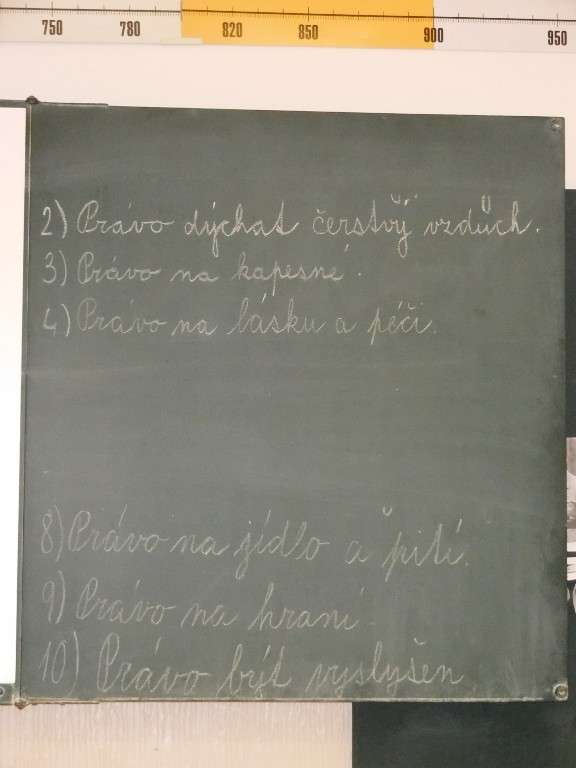 750 780 820 850 900 950
2) Právo dýchat čerstvý vzduch.
3) Právo na kapesné.
4) Právo na lásku a péči.
8) Právo na jídlo a pití.
9) Právo na hraní.
10) Právo být vyslyšen